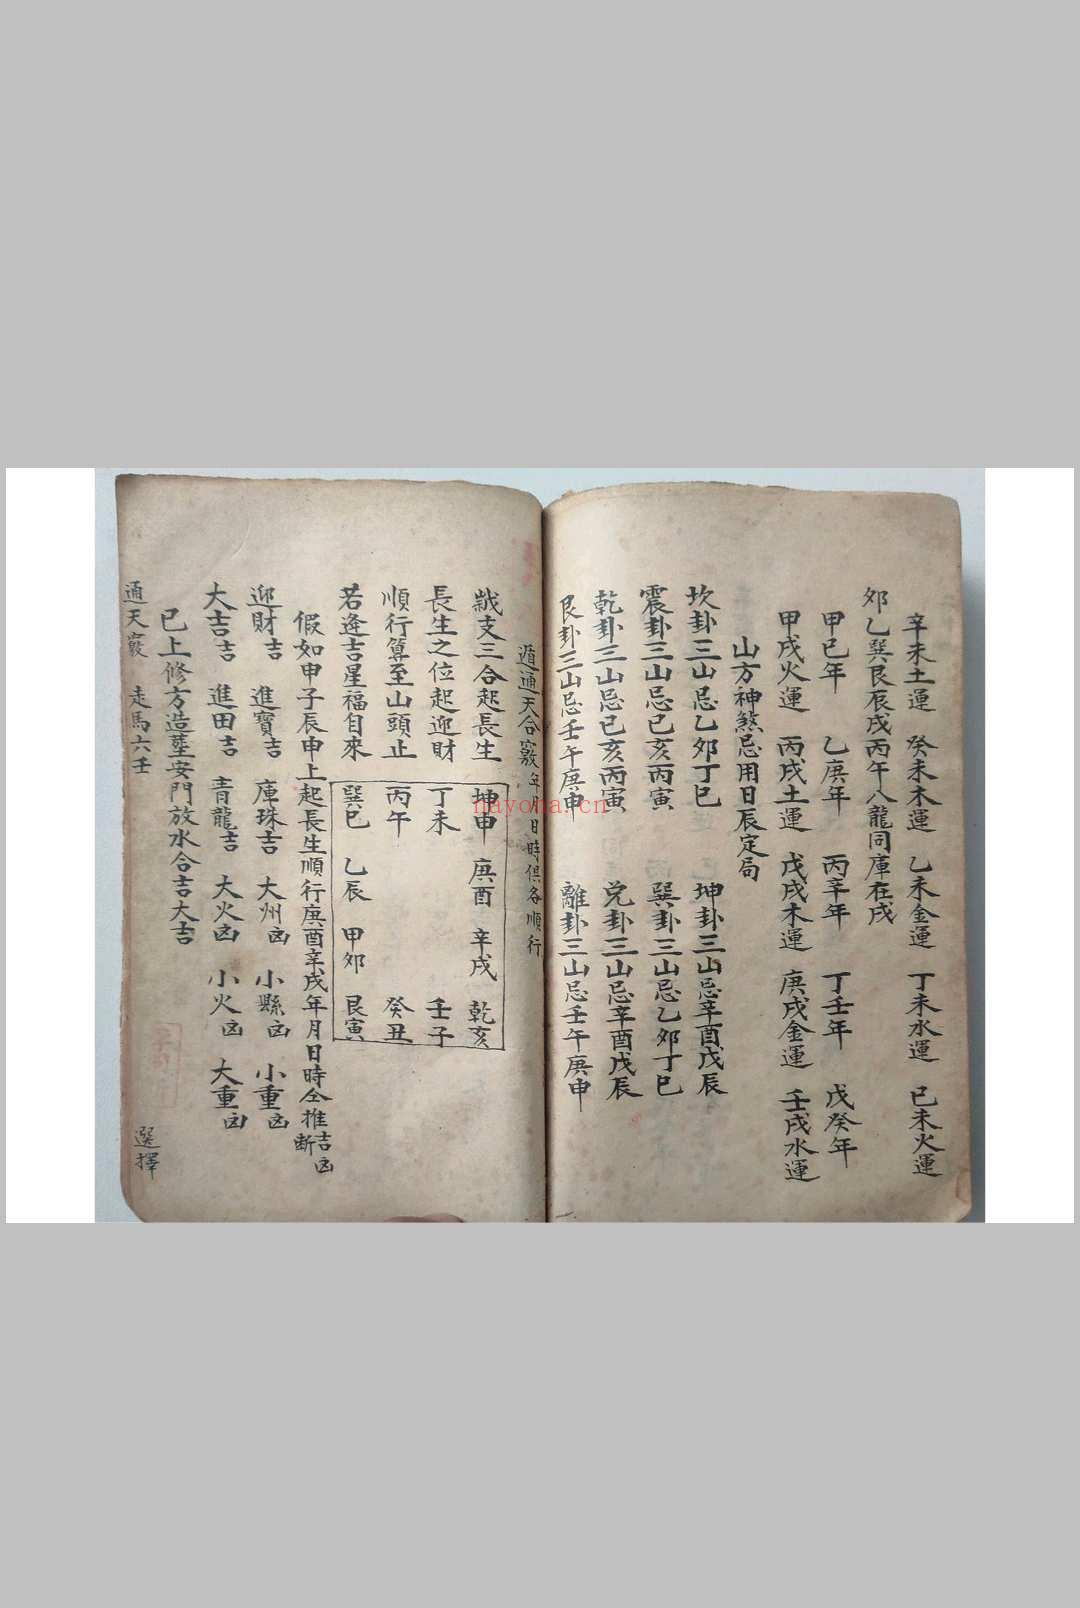 辛未土運　癸未木運　乙未金運　丁未水運　己未火運
卯乙巽艮辰戌丙午八龍同庫在戌
甲己年　乙庚年　丙辛年　丁壬年　戊癸年
甲戌火運　丙戌土運　戊戌木運　庚戌金運　壬戌水運
山方神煞忌用日辰定局
坎卦三山忌乙卯丁巳　坤卦三山忌辛酉戊辰
震卦三山忌己亥丙寅　巽卦三山忌乙卯丁巳
乾卦三山忌己亥丙寅　兌卦三山忌辛酉戊辰
艮卦三山忌壬午庚申　離卦三山忌壬午庚申
遁通天合竅年月日時俱各順行
歲支三合起長生
長生之位起迎財
順行算至山頭止
若逢吉星福自來
坤申　庚酉　辛戌　乾亥
丁未　壬子
丙午　癸丑
巽巳　乙辰　甲卯　艮寅
假如申子辰申上起長生順行庚酉辛戌年月日時仝推吉凶斷
迎財吉　進寶吉　庫珠吉　大州凶　小縣凶　小重凶
大吉吉　進田吉　青龍吉　大火凶　小火凶　大重凶
已上修方造塟安門放水合吉大吉
通天竅　走馬六壬　選擇
nayona.cn